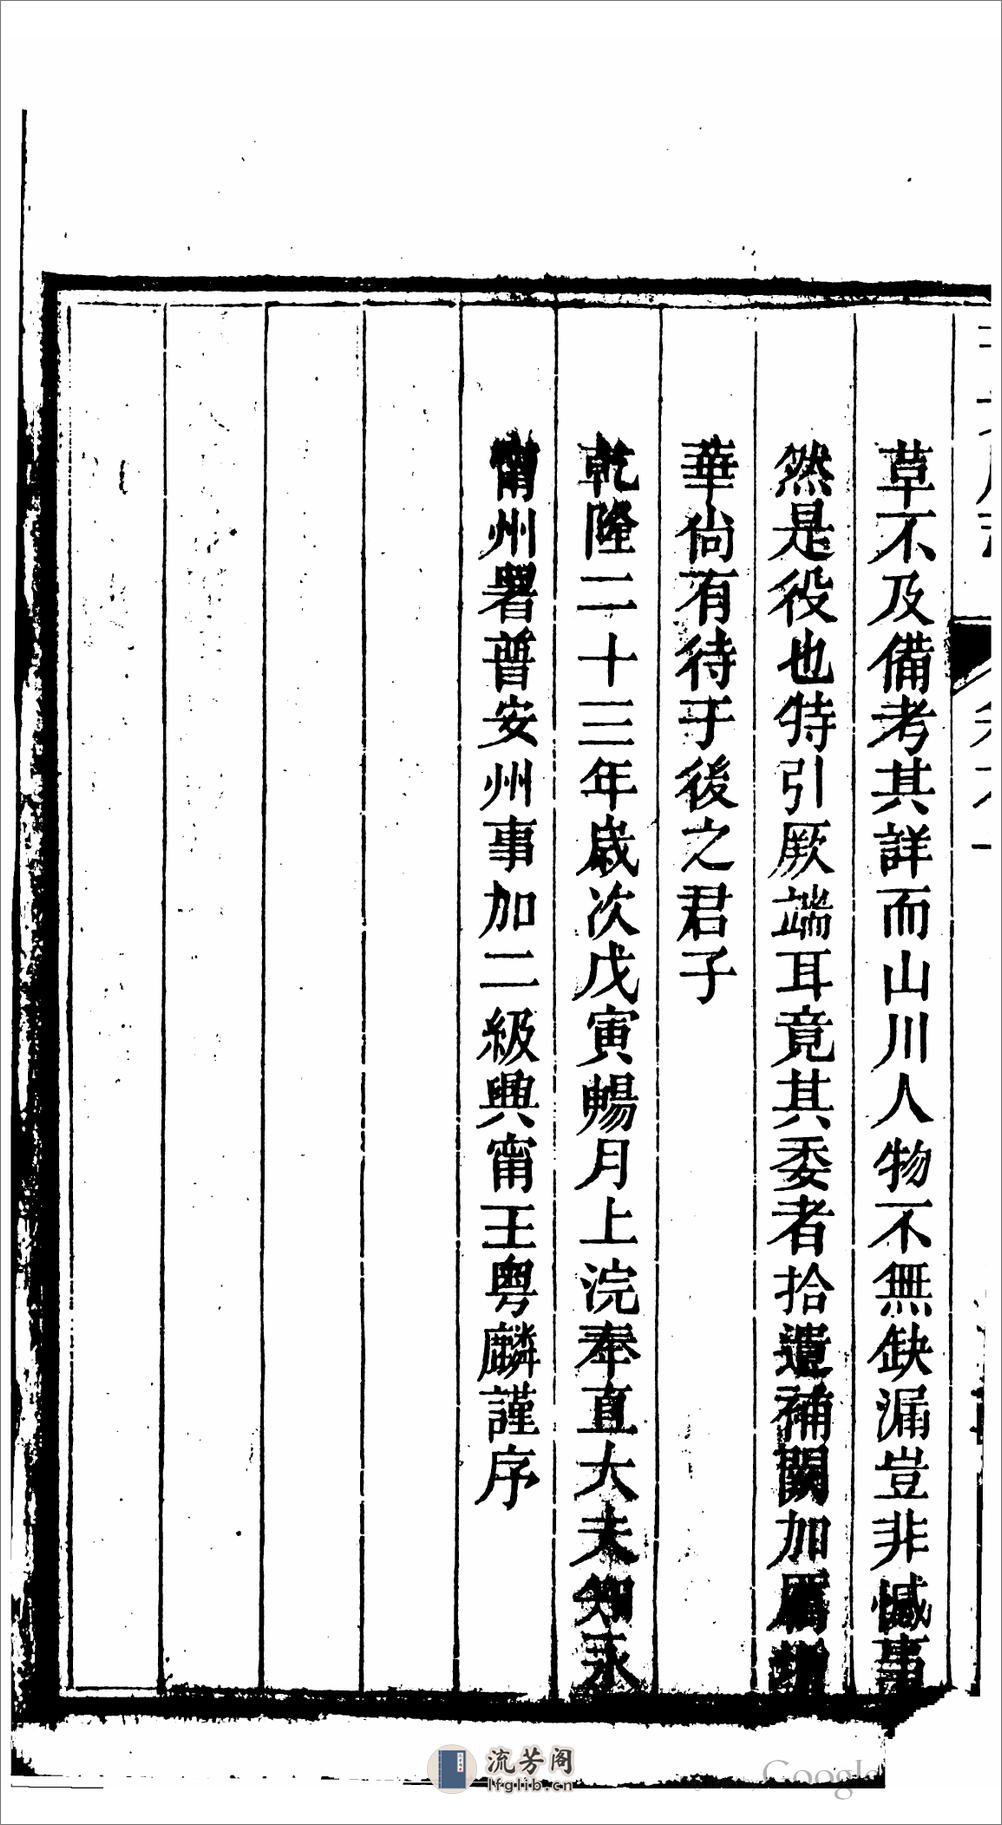 草不及備考其詳而山川人物不無缺漏豈非憾事
然是役也特引厥端耳竟其委者拾遺補闕加厲增
華尚有待于後之君子
乾隆二十三年歲次戊寅暢月上浣奉直大夫知永
甯州署普安州事加二級興甯王粤麟謹序
流芳阁
lfglib.cn
Google